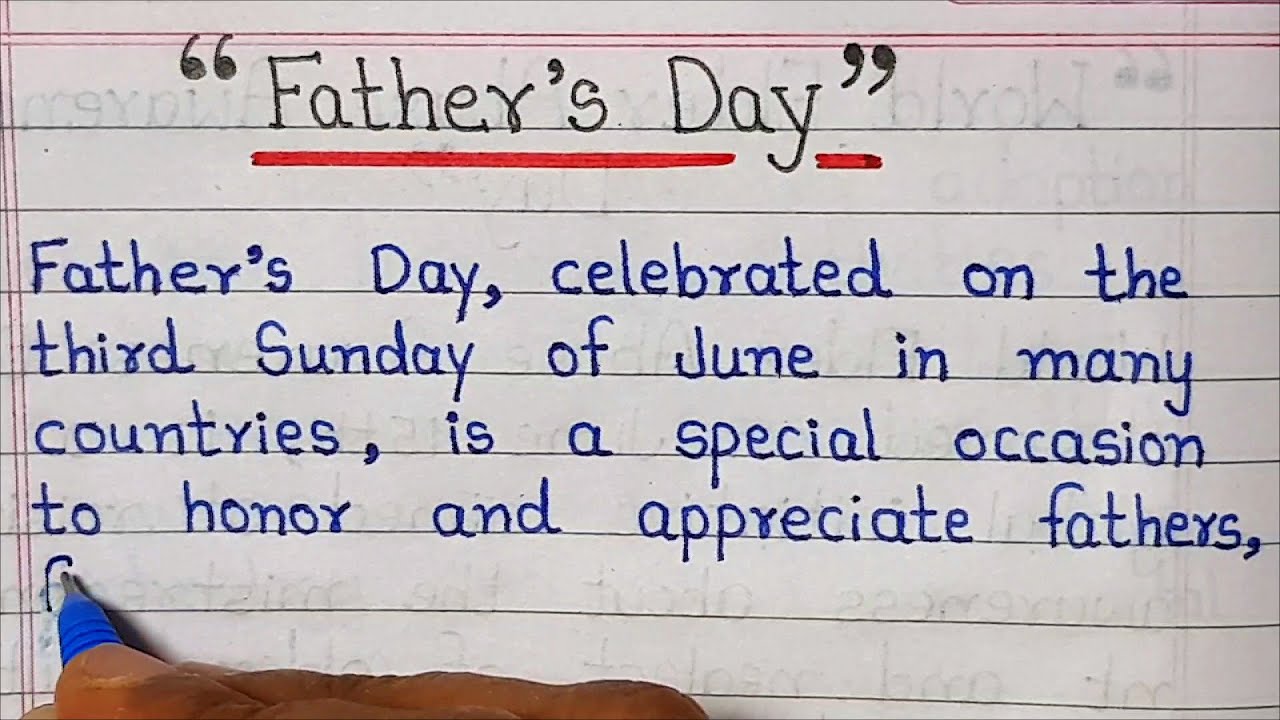 “Father’s Day”
Father’s Day, celebrated on the
third Sunday of June in many
countries, is a special occasion
to honor and appreciate fathers,
f